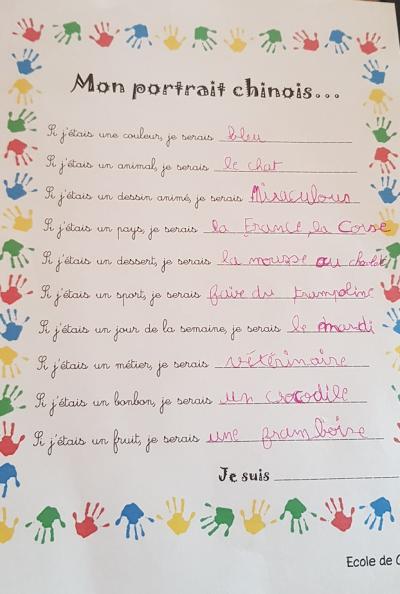 Mon portrait chinois...
Si j'étais une couleur, je serais bleu
Si j'étais un animal, je serais le chat
Si j'étais un dessin animé, je serais Miraculous
Si j'étais un pays, je serais la France, la Corse
Si j'étais un dessert, je serais la mousse au chocolat
Si j'étais un sport, je serais faire du trampoline
Si j'étais un jour de la semaine, je serais le mardi
Si j'étais un métier, je serais vétérinaire
Si j'étais un bonbon, je serais un crocodile
Si j'étais un fruit, je serais une framboise
Je suis
Ecole de